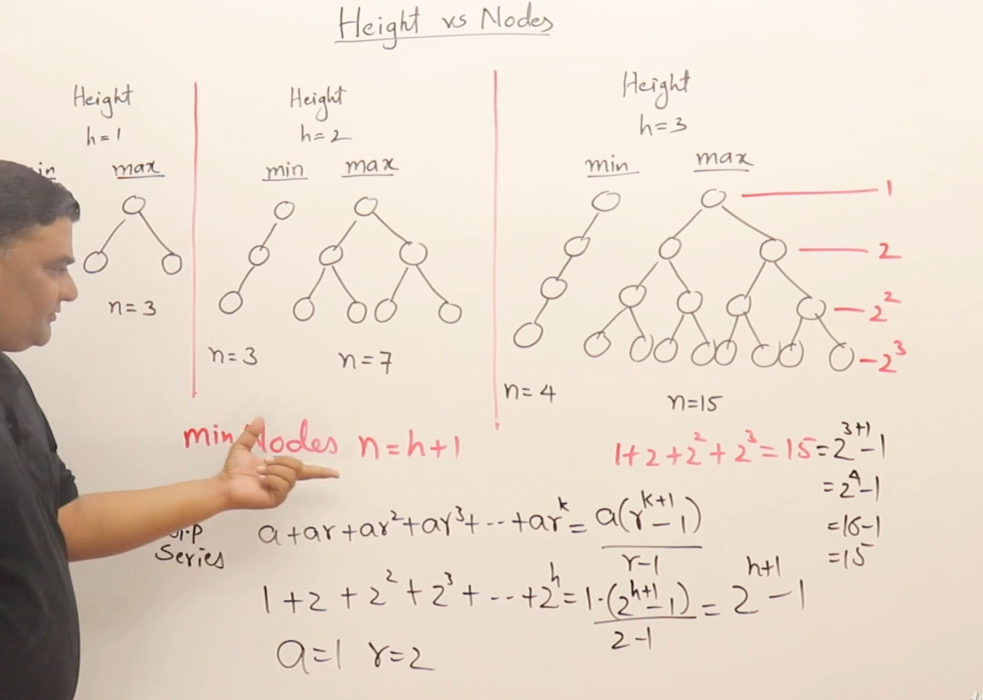 Height vs Nodes
Height
h=1
max
n=3
Height
h=2
min max
n=3 n=7
Height
h=3
min max
1
2
2²
2³
n=4
n=15
min Nodes n=h+1
1+2+2²+2³=15=2³⁺¹-1
=2⁴-1
=16-1
=15
Series
a+ar+ar²+ar³+--+ar^k = a(r^(k+1)-1)/(r-1)
1+2+2²+2³+--+2^h = 1·(2^(h+1)-1)/(2-1) = 2^(h+1)-1
a=1 r=2